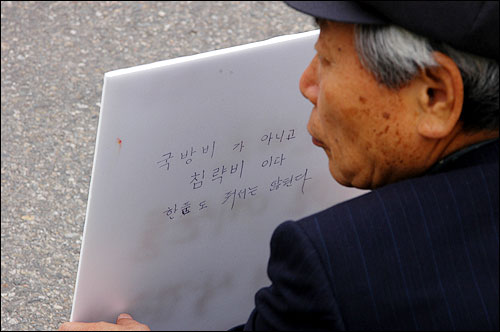 국방비 가 아니고
침략비 이다
한푼도 줘서는 않된다